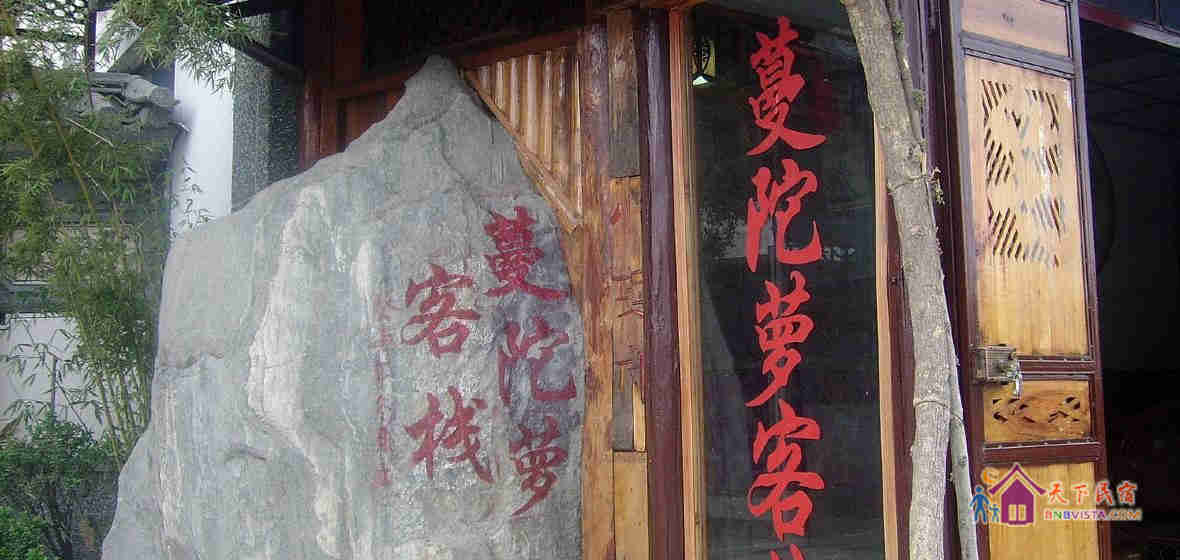 曼陀萝
客栈
曼陀萝客
天下民宿
BNBVISTA.COM